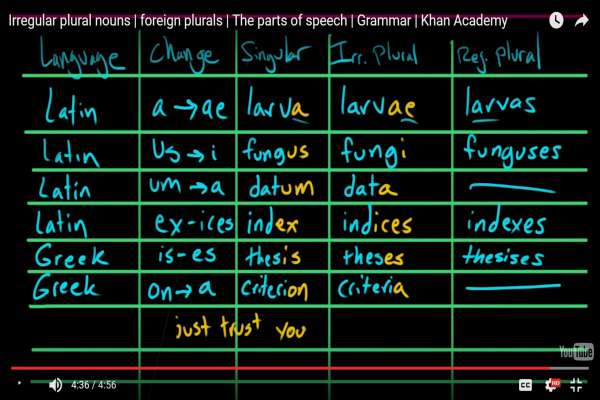 Irregular plural nouns | foreign plurals | The parts of speech | Grammar | Khan Academy
Language Change Singular Irr. Plural Reg. Plural
Latin a → ae larva larvae larvas
Latin us → i fungus fungi funguses
Latin um → a datum data —
Latin ex-ices index indices indexes
Greek is-es thesis theses thesises
Greek on → a criterion criteria —
just trust you
YouTube
4:36 / 4:56 CC HD